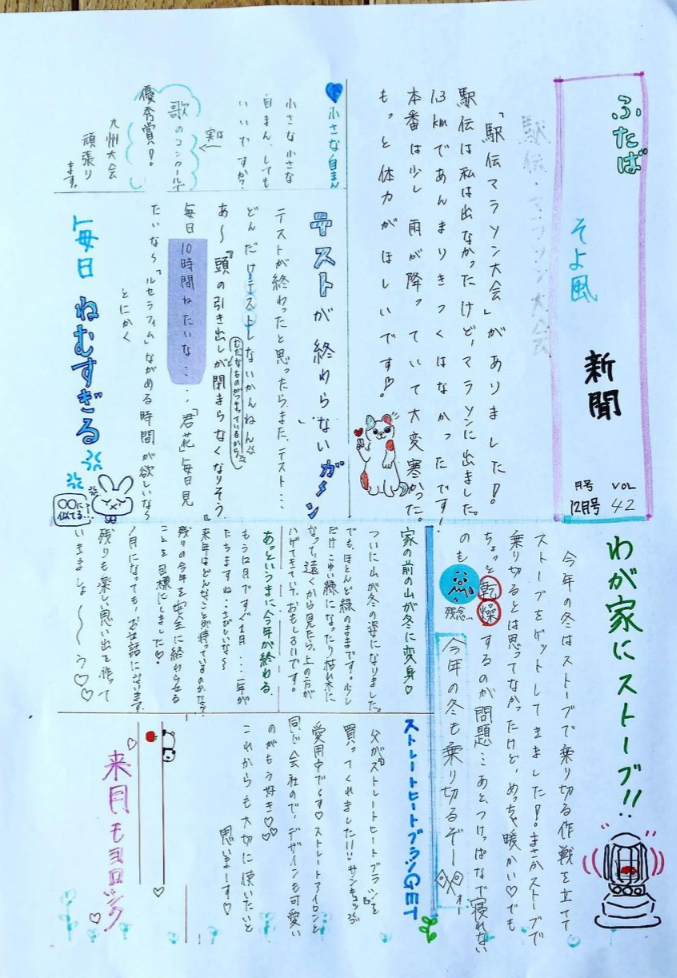 ふたば
そよ風
新聞
月号 VOL
12月号 42
「駅伝マラソン大会」がありました!
駅伝は私は出なかったけど、マラソンに出ました。
1.3kmであんまりきつくはなかったです!
本番は少し雨が降っていて大変寒かった。
もっと体力がほしいです♡。
小さな自まん
小さな小さな
自まん、しても
いいですか?
実は
歌のコンクールで
優秀賞!
九州大会
頑張り
ます。
テストが終わらないガーン
テストが終わったと思ったら、また、テスト...
どんだけテストしないかんねん
あ〜「頭の引き出しが閉まらなくなりそう。
毎日10時間ねたいな....「君花」毎日見
たいなら「ルセラフィム」ながめる時間が欲しいなら
とにかく
毎日ねむすぎる
〇〇に
似てる
わが家にストーブ!!
今年の冬はストーブで乗り切る作戦を立てて
ストーブをゲットしてきました!まさかストーブで
乗り切るとは思ってなかったけど、めっちゃ暖かい♡でも
ちょっと乾燥するのが問題...あと、つけっぱなで寝れない
のも
残念
今年の冬も乗り切るぞー
家の前の山が冬に変身♡
ついに山が冬の姿になりました。
でも、ほとんど緑のままです。少し
だけこい緑になったり枯れ木に
なって、遠くから見たら、上の方が
ハゲてきていて、おもしろいです。
あっというまに今年が終わる
もう12月ですぐ1月...一年が
たちますね..さびしいな〜
来年はどんなことが待っているのかな?
残りの今年を安全に終わらせる
ことを目標にしました♡
1月になっても、お世話になります。
残りも楽しい思い出を作って
いきましょ〜う♡♡
ストレートヒートブラシGET
父がストレートヒートブラシを
買ってくれました!!サンキュッ
愛用中です♡ストレートアイロンと
同じ会社ので、デザインも可愛い
のがもう好き♡♡
これからも大切に使いたいと
思いまーす♡
来月もヨロシク